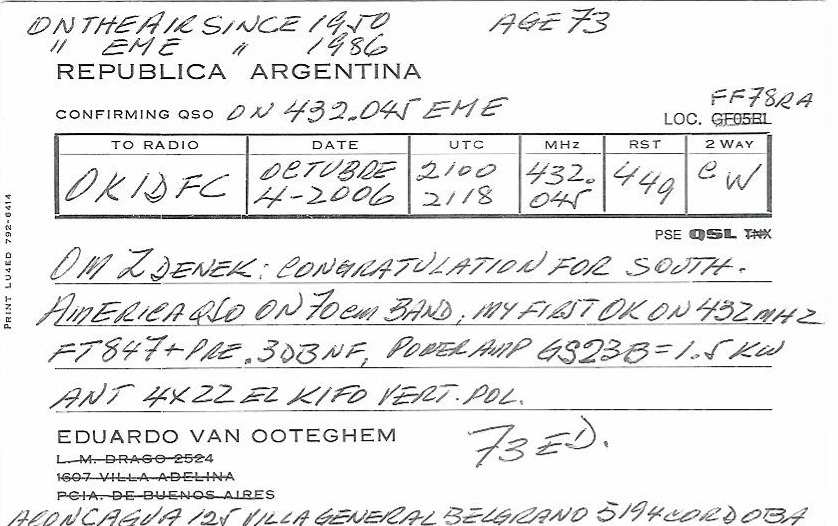 ON THE AIR SINCE 1950 AGE 73
" EME " 1986
REPUBLICA ARGENTINA
CONFIRMING QSO ON 432.045 EME
FF78RA
LOC. GF05BL
TO RADIO DATE UTC MHz RST 2 WAY
OK1DFC OCTUBRE 4-2006 2100 2118 432.045 449 CW
PSE QSL TNX
OM ZDENEK: CONGRATULATION FOR SOUTH.
AMERICA QSO ON 70CM BAND, MY FIRST OK ON 432MHZ
FT847+PRE .3DB NF, POWER AMP GS23B=1.5KW
ANT 4X22 EL K1FO VERT. POL.
EDUARDO VAN OOTEGHEM
73 ED.
L. M. DRAGO 2524
1607 VILLA ADELINA
PCIA. DE BUENOS AIRES
ACONCAGUA 125 VILLA GENERAL BELGRANO 5194 CORDOBA
PRINT LU4ED 792-6414